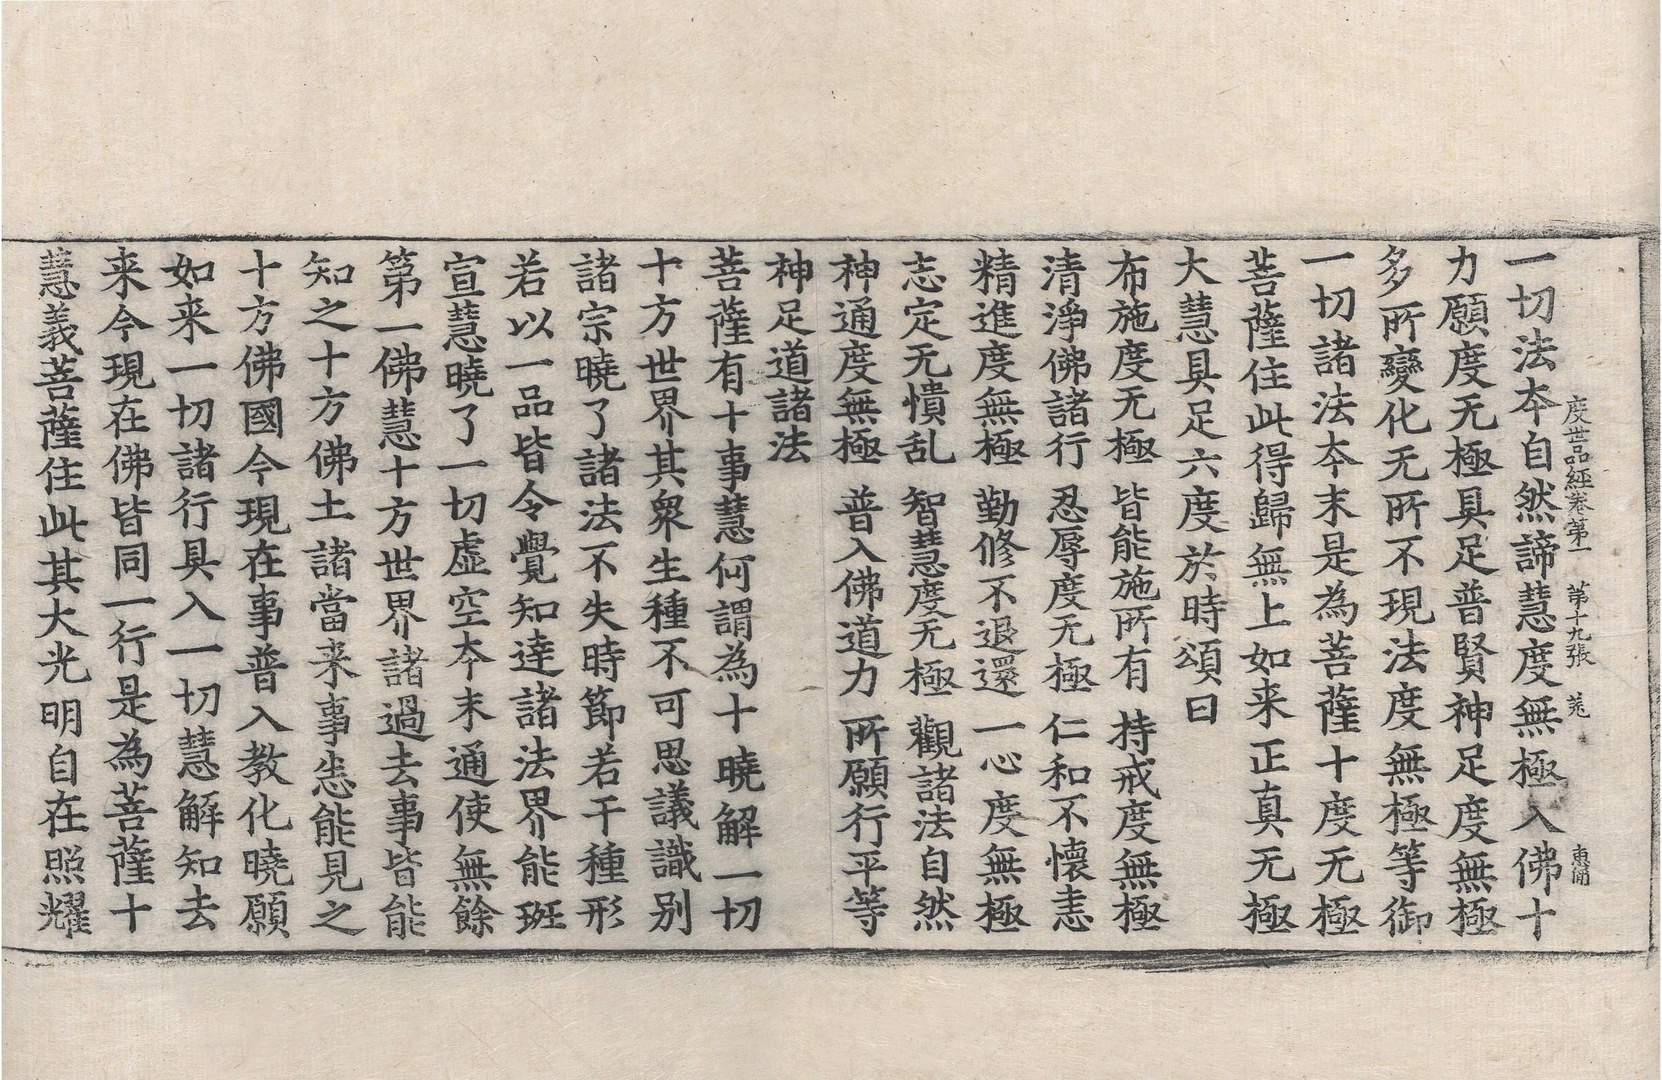 度世品經卷第一 第十九張 菟
一切法夲自然諦慧度無極入佛十
力願度无極具足普賢神足度無極
多所變化无所不現法度無極等御
一切諸法夲末是為菩薩十度无極
菩薩住此得歸無上如来正真无極
大慧具足六度於時頌曰
布施度无極 皆能施所有 持戒度無極
清淨佛諸行 忍辱度无極 仁和不懷恚
精進度無極 勤修不退還 一心度無極
志定无憒乱 智慧度无極 觀諸法自然
神通度無極 普入佛道力 所願行平等
神足道諸法
菩薩有十事慧何謂為十曉解一切
十方世界其衆生種不可思議識别
諸宗曉了諸法不失時節若干種形
若以一品皆令覺知達諸法界能班
宣慧曉了一切虛空夲末通使無餘
第一佛慧十方世界諸過去事皆能
知之十方佛土諸當来事悉能見之
十方佛國今現在事普入教化曉願
如来一切諸行具入一切慧解知去
来今現在佛皆同一行是為菩薩十
慧義菩薩住此其大光明自在照耀